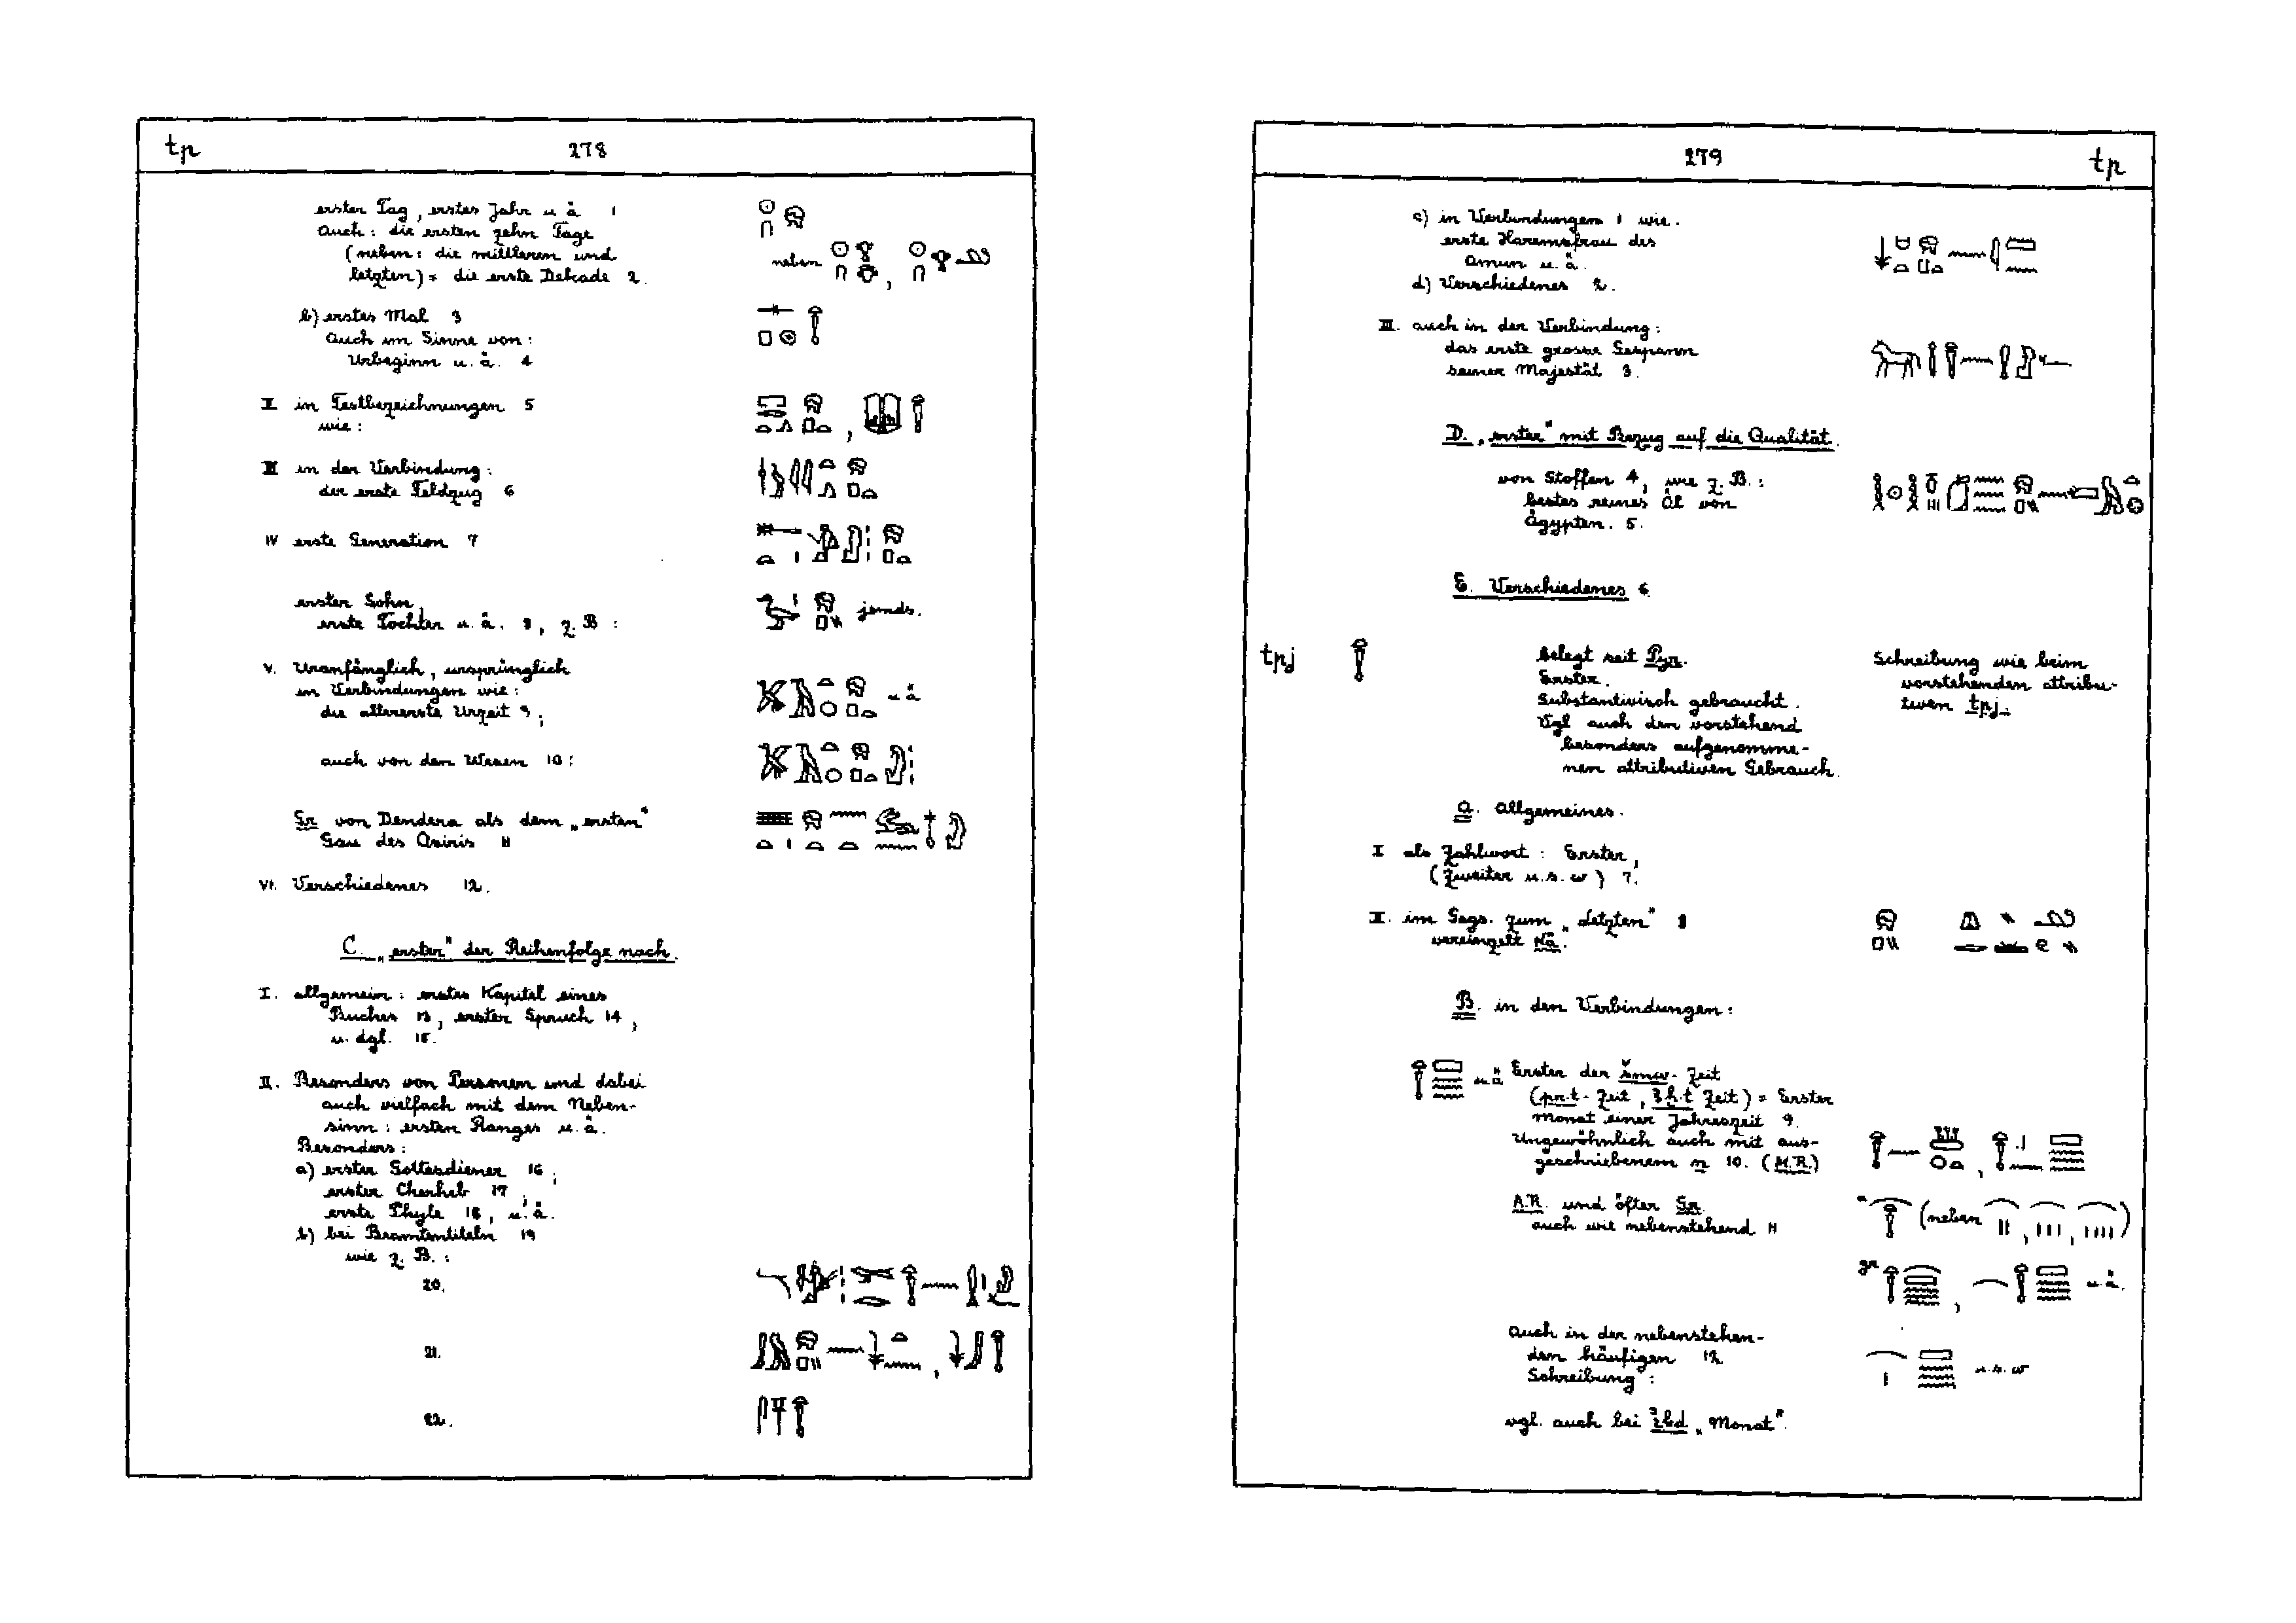 tp 278
erster Tag, erstes Jahr u. ä. 1
Auch: die ersten zehn Tage
(neben: die mittleren und
letzten) = die erste Dekade 2.
neben
b) erstes Mal 3
Auch im Sinne von:
Urbeginn u. ä. 4
II in Festbezeichnungen 5
wie:
III in der Verbindung:
der erste Feldzug 6
IV erste Generation 7
erster Sohn,
erste Tochter u. ä. 8, z. B.:
jemds.
V. Uranfänglich, ursprünglich
in Verbindungen wie:
die allererste Urzeit 9;
u. ä.
auch von den Wesen 10:
Gr. von Dendera als dem „ersten"
Gau des Osiris 11
VI. Verschiedenes 12.
C. „erster" der Reihenfolge nach.
I. allgemein: erstes Kapitel eines
Buches 13, erster Spruch 14,
u. dgl. 15.
II. Besonders von Personen und dabei
auch vielfach mit dem Neben-
sinn: ersten Ranges u. ä.
Besonders:
a) erster Gottesdiener 16;
erster Cherheb 17;
erste Phyle 18, u. ä.
b) bei Beamtentiteln 19
wie z. B.:
20.
21.
22.
279 tp
c) in Verbindungen 1 wie.
erste Haremsfrau des
Amun u. ä.
d) Verschiedenes 2.
III. auch in der Verbindung:
das erste grosse Gespann
seiner Majestät 3.
D. „erster" mit Bezug auf die Qualität.
von Stoffen 4, wie z. B.:
bestes reines Öl von
Ägypten. 5.
E. Verschiedenes 6
tpj
belegt seit Pyr.
Erster.
Substantivisch gebraucht.
Vgl. auch den vorstehend
besonders aufgenomme-
nen attributiven Gebrauch.
Schreibung wie beim
vorstehenden attribu-
tiven tpj.
a. Allgemeines.
I als Zahlwort: Erster,
(Zweiter u. s. w) 7.
II. im Ggs. zum „Letzten" 8
vereinzelt Nä.
B. in den Verbindungen:
u. ä. Erster der šmw-Zeit
(pr.t-Zeit, ꜣḫ.t Zeit) = Erster
Monat einer Jahreszeit 9.
Ungewöhnlich auch mit aus-
geschriebenem n 10. (M.R.)
A.R. und öfter Gr.
auch wie nebenstehend 11
(neben , , )
gr u. ä.
Auch in der nebenstehen-
den häufigen 12
Schreibung:
u. s. w
vgl. auch bei ꜣbd „Monat".